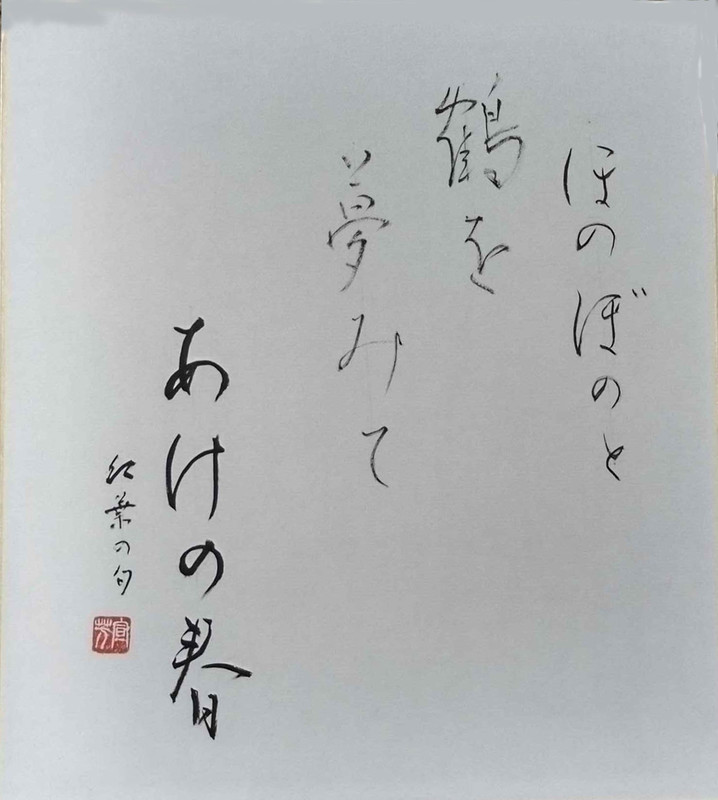 ほのぼのと
鶴を
夢みて
あけの春
紅葉の句
宣芳